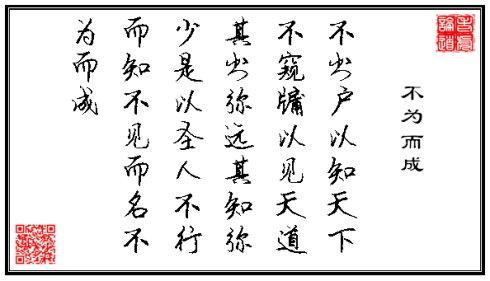 論道
不为而成
不出户以知天下
不窥牖以见天道
其出弥远其知弥
少是以圣人不行
而知不见而名不
为而成